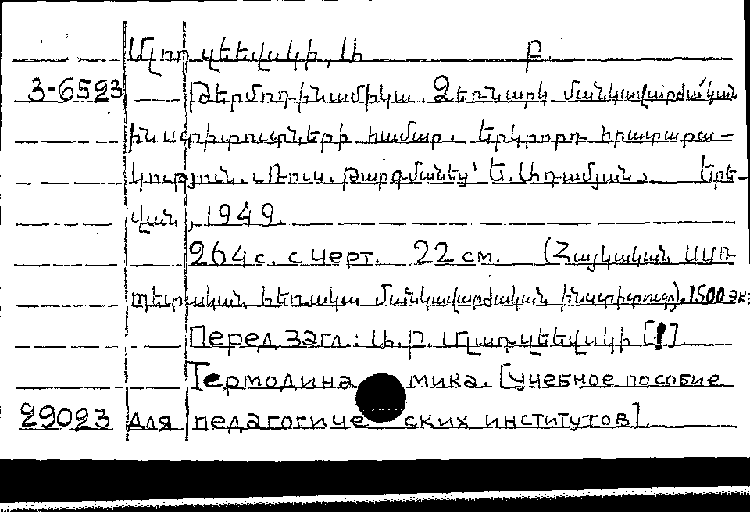 Մլոդզեևսկի, Ա                    Բ.
3-6523 Թերմոդինամիկա. Ձեռնարկ մանկավարժական
ինստիտուտների համար. Երկրորդ հրատարա-
կություն. Ռուս. թարգմանեց՝ Ե. Ադամյան. Երե-
վան, 1949.
264 с. с черт. 22 см. (Հայկական ՍՍՌ
պետական հեռակա մանկավարժական ինստիտուտ). 1500 экз
Перед загл.: Ա. Բ. Մլոդզեևսկի [!]
Термодинамика. [Учебное пособие
29023 для педагогических институтов]